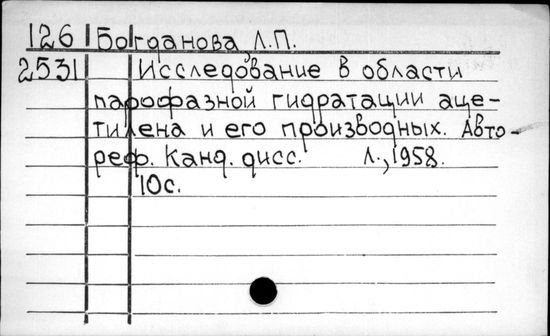 126 Богданова, Л.П.
2531 Исследование в области
парофазной гидратации аце-
тилена и его производных. Авто-
реф. Канд. дисс. Л., 1958.
10с.